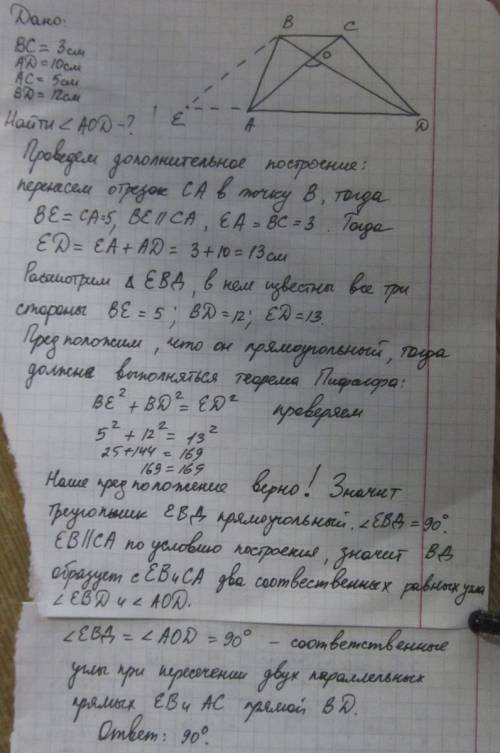 Дано:
BC = 3см
AD = 10см
AC = 5см
BD = 12см
Найти ∠AOD - ?
B
C
O
E
A
D
Проведем дополнительное построение:
перенесем отрезок CA в точку B, тогда
BE = CA = 5, BE || CA, EA = BC = 3. Тогда
ED = EA + AD = 3 + 10 = 13 см
Рассмотрим Δ EBД, в нем известны все три
стороны BE = 5; BD = 12; ED = 13.
Предположим, что он прямоугольный, тогда
должна выполняться теорема Пифагора:
BE² + BD² = ED² проверяем
5² + 12² = 13²
25 + 144 = 169
169 = 169
Наше предположение верно! Значит
треугольник EBД прямоугольный. ∠EBД = 90°.
EB || CA по условию построения, значит BД
образует с EB и CA два соотвественных равных угла
∠EBD и ∠AOD.
∠EBД = ∠AOD = 90° - соответственные
углы при пересечении двух параллельных
прямых EB и AC прямой BD.
Ответ: 90°.